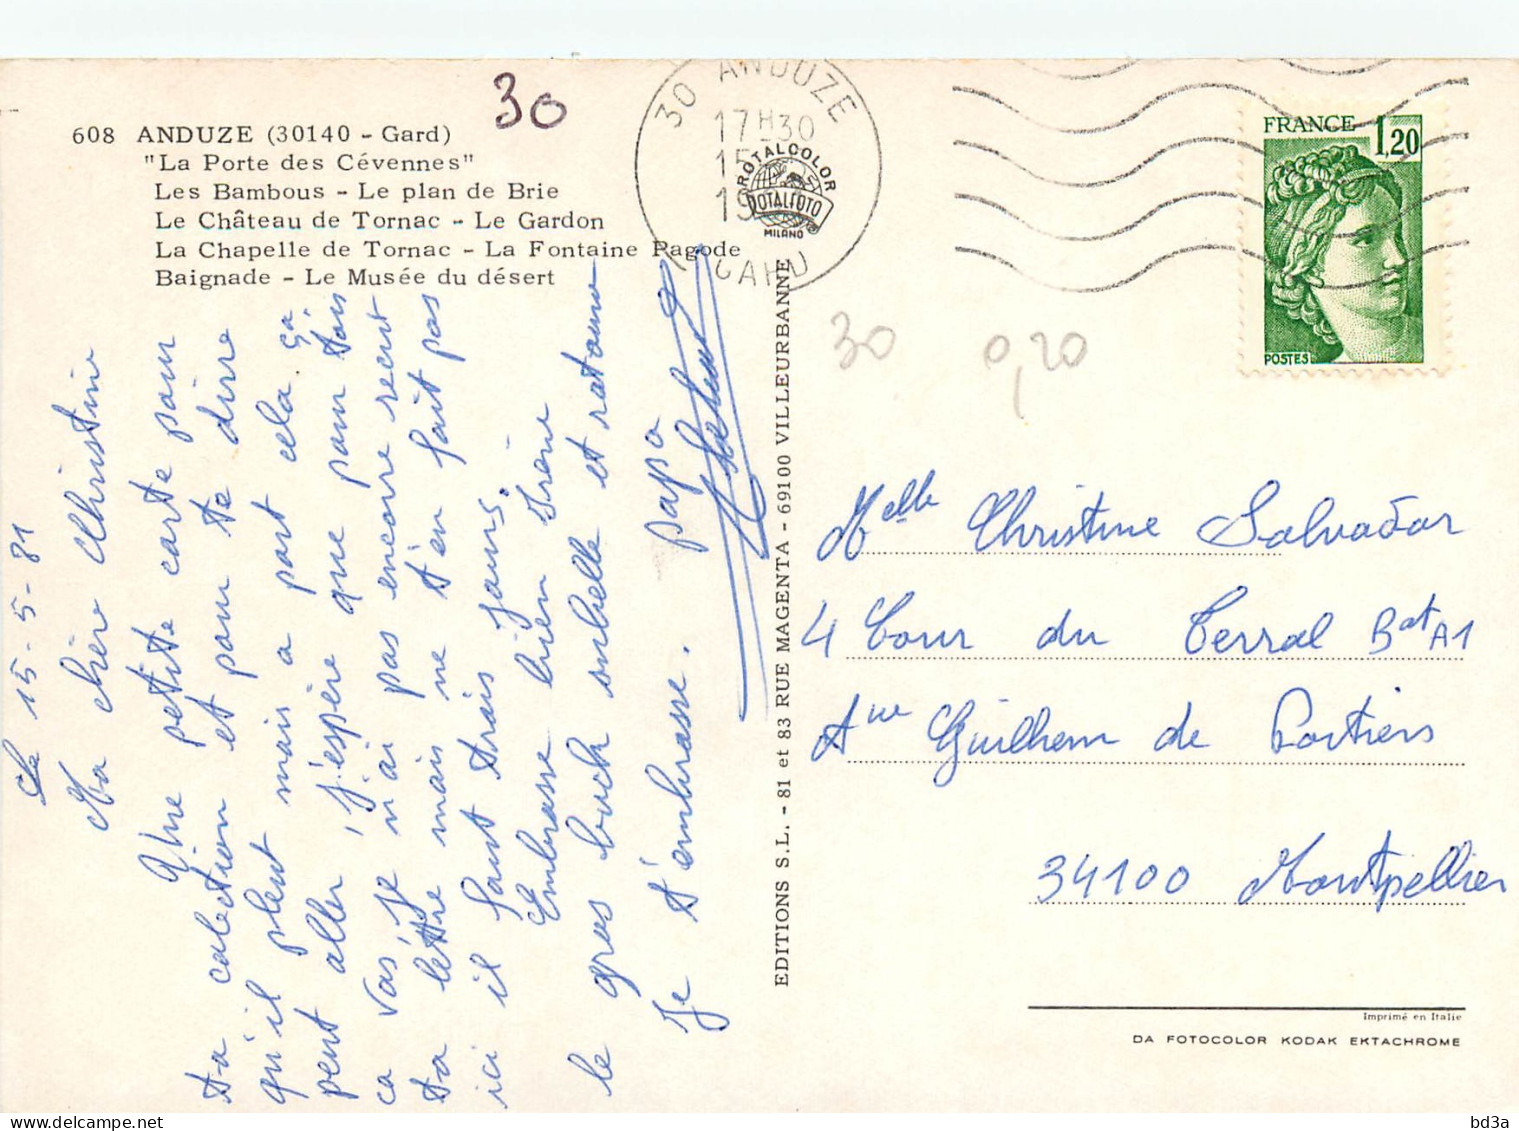 30
608 ANDUZE (30140 - Gard)
"La Porte des Cévennes"
Les Bambous - Le plan de Brie
Le Château de Tornac - Le Gardon
La Chapelle de Tornac - La Fontaine Pagode
Baignade - Le Musée du désert
30 ANDUZE
17H30
15
19
GARD
ROTALCOLOR
ROTALFOTO
MILANO
FRANCE 1,20
POSTES
30 0,20
Le 15-5-81
Ma chère Christine
Une petite carte pour
ta calection et pour te dire
qu'il pleut mais a part cela ça
peut aller, j'espère que pour tois
ca vas, je n'ai pas encore recut
ta lettre mais ne t'en fait pas
ici il sont trais jours.
Embrasse bien Irène
le gros
et
Je t'embrasse. papa
EDITIONS S.L. - 81 et 83 RUE MAGENTA - 69100 VILLEURBANNE
Melle Christine Salvador
4 Cour du Terral Bat A1
Ane Guilhem de Poitiers
34100 Montpellier
Imprimé en Italie
DA FOTOCOLOR KODAK EKTACHROME
bd3a